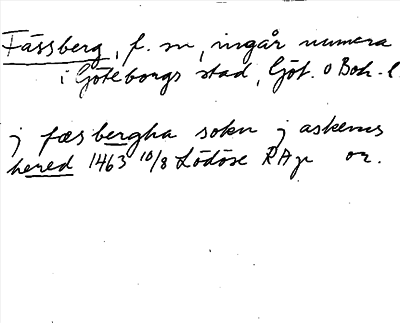 Fässberg, f. sn, ingår numera
i Göteborgs stad, Göt. o Boh. l.
j fæsbergha sokn j askems
hered 1463 10/8 Lödöse RAp or.